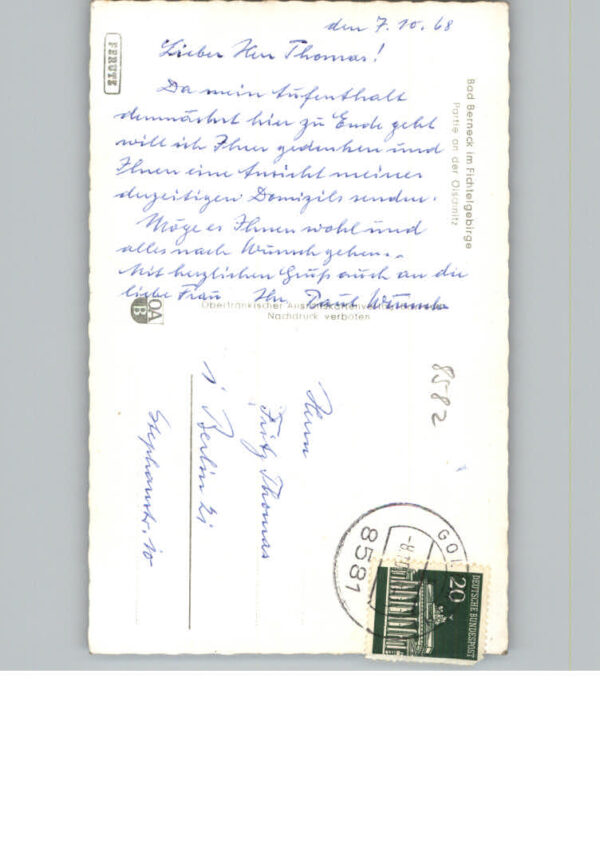 den 7. 10. 68
Lieber Herr Thomas!
Da mein Aufenthalt
demnächst hier zu Ende geht
will ich Ihrer gedenken und
Ihnen eine Ansicht meines
derzeitigen Domizils senden.
Möge es Ihnen wohl und
alles nach Wunsch gehen.
Mit herzlichen Gruß auch an die
liebe Frau Ihr Paul
Bad Berneck im Fichtelgebirge
Partie an der Ölschnitz
FERUTE
OA
B
Oberfränkischer
Nachdruck verboten
8582
Herrn
Fritz Thomas
1 Berlin 21
Stephanstr. 10
8581
20
DEUTSCHE BUNDESPOST